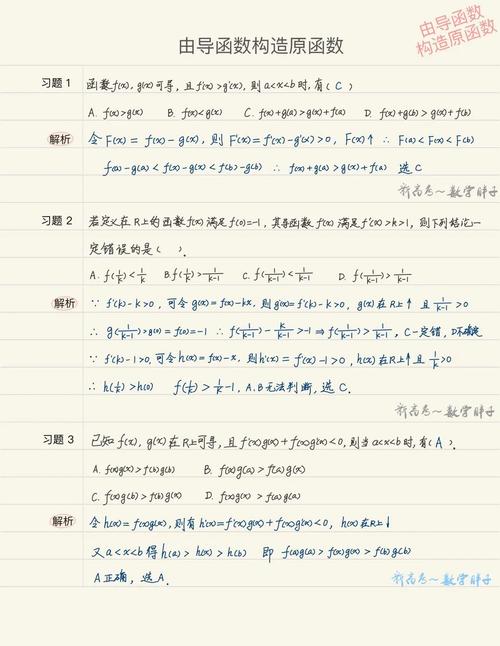 由导函数
构造原函数
由导函数构造原函数
习题 1 函数f(x), g(x)可导, 且f'(x)>g'(x), 则a<x<b时, 有( C )
A. f(x)>g(x) B. f(x)<g(x) C. f(x)+g(a)>g(x)+f(a) D. f(x)+g(b)>g(x)+f(b)
解析 令F(x)= f(x)-g(x), 则F'(x)=f'(x)-g'(x)>0, F(x)↑ ∴ F(a)<F(x)<F(b)
f(a)-g(a)<f(x)-g(x)<f(b)-g(b) ∴ f(x)+g(a)>g(x)+f(a) 选C
新高考~数学胖子
习题 2 若定义在R上的函数f(x)满足f(0)=-1, 其导函数f'(x)满足f'(x)>k>1, 则下列结论一
定错误的是( ).
A. f(1/k)<1/k B. f(1/k)>1/(k-1) C. f(1/(k-1))<1/(k-1) D. f(1/(k-1))>1/(k-1)
解析 ∵ f'(x)-k>0, 可令g(x)=f(x)-kx, 则g'(x)=f'(x)-k>0, g(x)在R上↑ 且 1/(k-1)>0
∴ g(1/(k-1))>g(0)=f(0)=-1 ∴ f(1/(k-1))-k/(k-1)>-1⇒f(1/(k-1))>1/(k-1), C一定错, D不确定
∵ f'(x)-1>0, 可令h(x)=f(x)-x, 则h'(x)=f'(x)-1>0, h(x)在R上↑且1/k>0
∴ h(1/k)>h(0) f(1/k)>1/k-1, A.B无法判断, 选C.
新高考~数学胖子
习题 3 已知f(x), g(x)在R上可导, 且f'(x)g(x)+f(x)g'(x)<0, 则当a<x<b时, 有( A ).
A. f(x)g(x)>f(b)g(b) B. f(x)g(a)>f(a)g(x)
C. f(x)g(b)>f(b)g(x) D. f(x)g(x)>f(a)g(a)
解析 令h(x)=f(x)g(x), 则有h'(x)=f'(x)g(x)+f(x)g'(x)<0, h(x)在R上↓
又a<x<b得h(a)>h(x)>h(b) 即 f(a)g(a)>f(x)g(x)>f(b)g(b)
A正确, 选A.
新高考~数学胖子